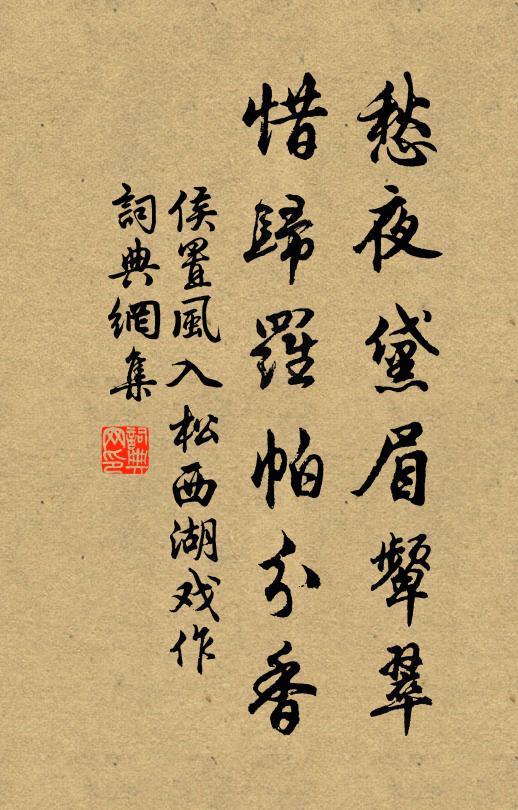 愁夜黛眉顰翠
惜歸羅帕分香
侯置風入松西湖戏作
詞典網集
詞典網印